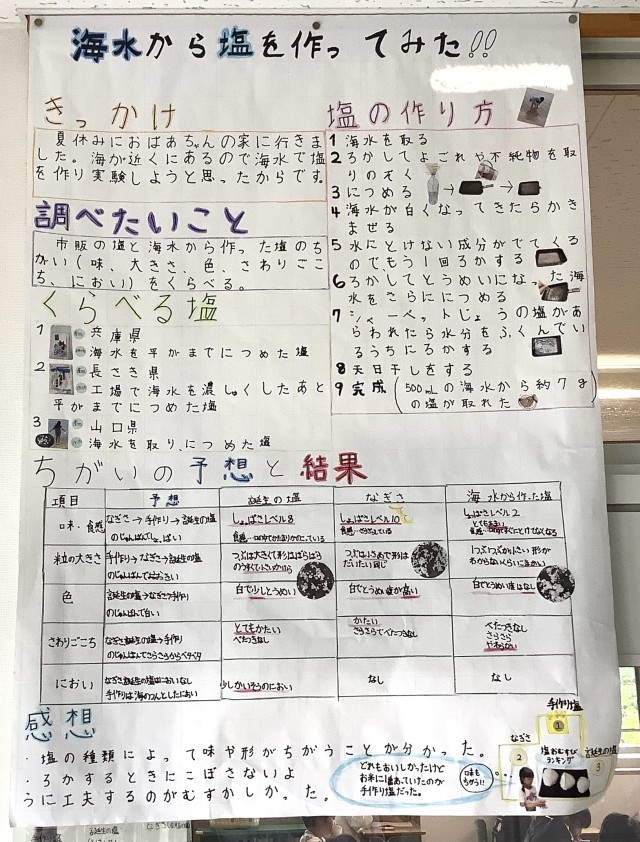 海水から塩を作ってみた!!
きっかけ
夏休みにおばあちゃんの家に行きま
した。海が近くにあるので海水で塩
を作り実験しようと思ったからです。
調べたいこと
市販の塩と海水から作った塩のち
がい(味、大きさ、色、さわりごこ
ち、におい)をくらべる。
くらべる塩
1 兵庫県
海水を平がまでにつめた塩
2 長さき県
工場で海水を濃しゅくしたあと
平がまでにつめた塩
3 山口県
海水を取り、につめた塩
塩の作り方
1 海水を取る
2 ろかしてよごれや不純物を取
りのぞく
3 につめる → →
4 海水が白くなってきたらかき
まぜる
5 水にとけない成分がでてくる
のでもう1回ろかする
6 ろかしてとうめいになった海
水をさらににつめる
7 シャーベットじょうの塩があ
らわれたら水分をふくんでい
るうちにろかする
8 天日干しをする
9 完成(500mLの海水から約7g
の塩が取れた
ちがいの予想と結果
項目 予想 誕生の塩 なぎさ 海水から作った塩
味・食感 なぎさ→手作り→誕生の塩
のじゅんばんでしょっぱい
しょぱさレベル8
しょぱさレベル10
しょぱさレベル2
粒の大きさ 手作り→なぎさ→誕生の塩
のじゅんばんでおおきい
つぶは大きくて形はばらばら
つぶは小さめで形は
だいたい同じ
色 誕生の塩→なぎさ→手作り
のじゅんばんで白い
白で少しとうめい
白でとうめい度が高い
白でとうめい度はなし
さわりごこち なぎさ→誕生の塩→手作り
のじゅんばんでさらさらからベタベタ
とてもかたい
べたつきなし
かたい
さらさらでべたつきなし
べたつきなし
さらさら
やわらかい
におい なぎさと誕生の塩はにおいなし
手作りは海のつんとしたにおい
少しかいそうのにおい
なし
なし
感想
・塩の種類によって味や形がちがうことが分かった。
・ろかするときにこぼさないよ
うに工夫するのがむずかしかった。
どれもおいしかったけど
お米に1番あっていたのが
手作り塩だった。
味も
ちがう!!
手作り塩
1
なぎさ
2
塩おむすび
ランキング
誕生の塩
3